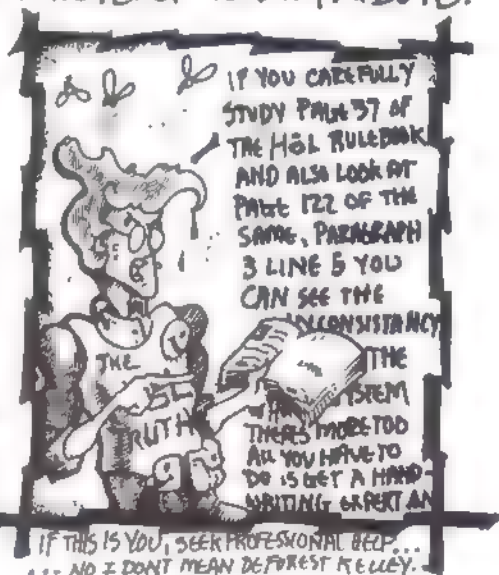 IF YOU CAREFULLY
STUDY PAGE 37 OF
THE HōL RULEBOOK
AND ALSO LOOK AT
PAGE 122 OF THE
SAME, PARAGRAPH
3 LINE 5 YOU
CAN SEE THE
INCONSISTANCY
THE
SYSTEM
THERES MORE TOO
ALL YOU HAVE TO
DO IS GET A HAND-
WRITING EXPERT AN
THE
UTH
IF THIS IS YOU, SEEK PROFESSIONAL HELP...
... NO I DONT MEAN DEFOREST KELLEY.